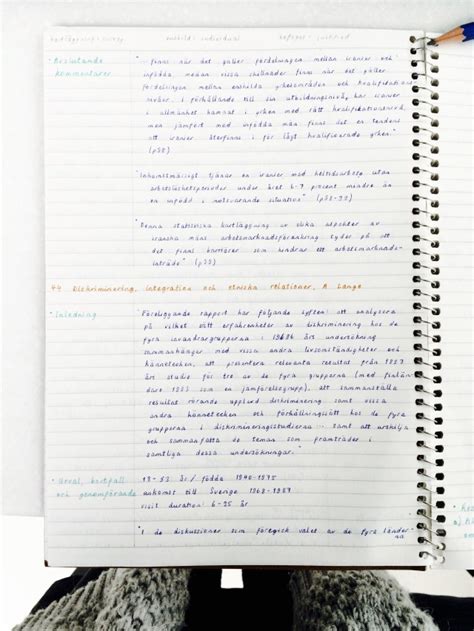 Avslutande kommentarer
"... finns när det gäller fördelningen mellan iranier och
infödda medan vissa skillnader finns när det gäller
fördelningen mellan enskilda yrkesområden och kvalifikations-
nivåer. I förhållande till sin utbildningsnivå har iranier
i allmänhet hamnat i yrken med rätt kvalifikationsnivå,
men jämfört med infödda män finns det en tendens
att iranier återfinns i för lågt kvalificerade yrken."
(p98)
"Inkomstmässigt tjänar en iranier med heltidsarbete utan
arbetslöshetsperioder under året 6-7 procent mindre än
en infödd i motsvarande situation" (p98-99)
"Denna statistiska kartläggning av olika aspekter av
iranska mäns arbetsmarknadsförankring tyder på att
det finns barriärer som hindrar ett arbetsmarknads-
inträde" (p99)
4.4 Diskriminering, integration och etniska relationer, A Lange
Inledning
"Föreliggande rapport har följande syften: att analysera
på vilket sätt erfarenheter av diskriminering hos de
fyra invandrargrupperna i 1996 års undersökning
sammanhänger med vissa andra livsomständigheter och
kännetecken, att presentera relevanta resultat från 1997
års studie för tre av de fyra grupperna (med
som en jämförelsegrupp), att sammanställa
resultat rörande upplevd diskriminering samt vissa
andra kännetecken och förhållningssätt hos de fyra
grupperna i diskrimineringsstudierna - samt att urskilja
och sammanfatta de teman som framträder i
samtliga dessa undersökningar."
Urval, bortfall
och genomförande
år / födda 1940-1975
ankomst till Sverige 1968-1987
visit duration: 6-25 år
"I de diskussioner som föregick valet av de fyra länder-
na